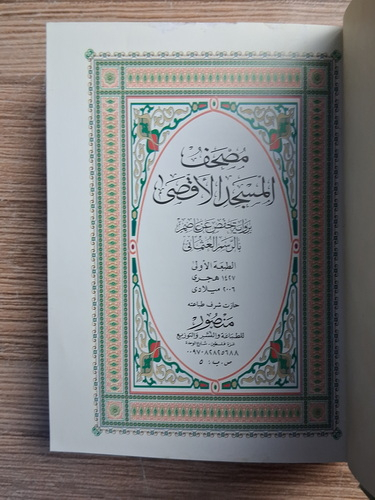 مصحف
المسجد الأقصى
برواية حفص عن عاصم
بالرسم العثماني
الطبعة الأولى
١٤٢٧ هجري
٢٠٠٦ ميلادي
حازت شرف طباعته
منصور
للطباعة والنشر والتوزيع
غزة - فلسطين - شارع الوحدة
٠٠٩٧٠٨٢٨٢٥٦٨٨
ص.ب: ٥